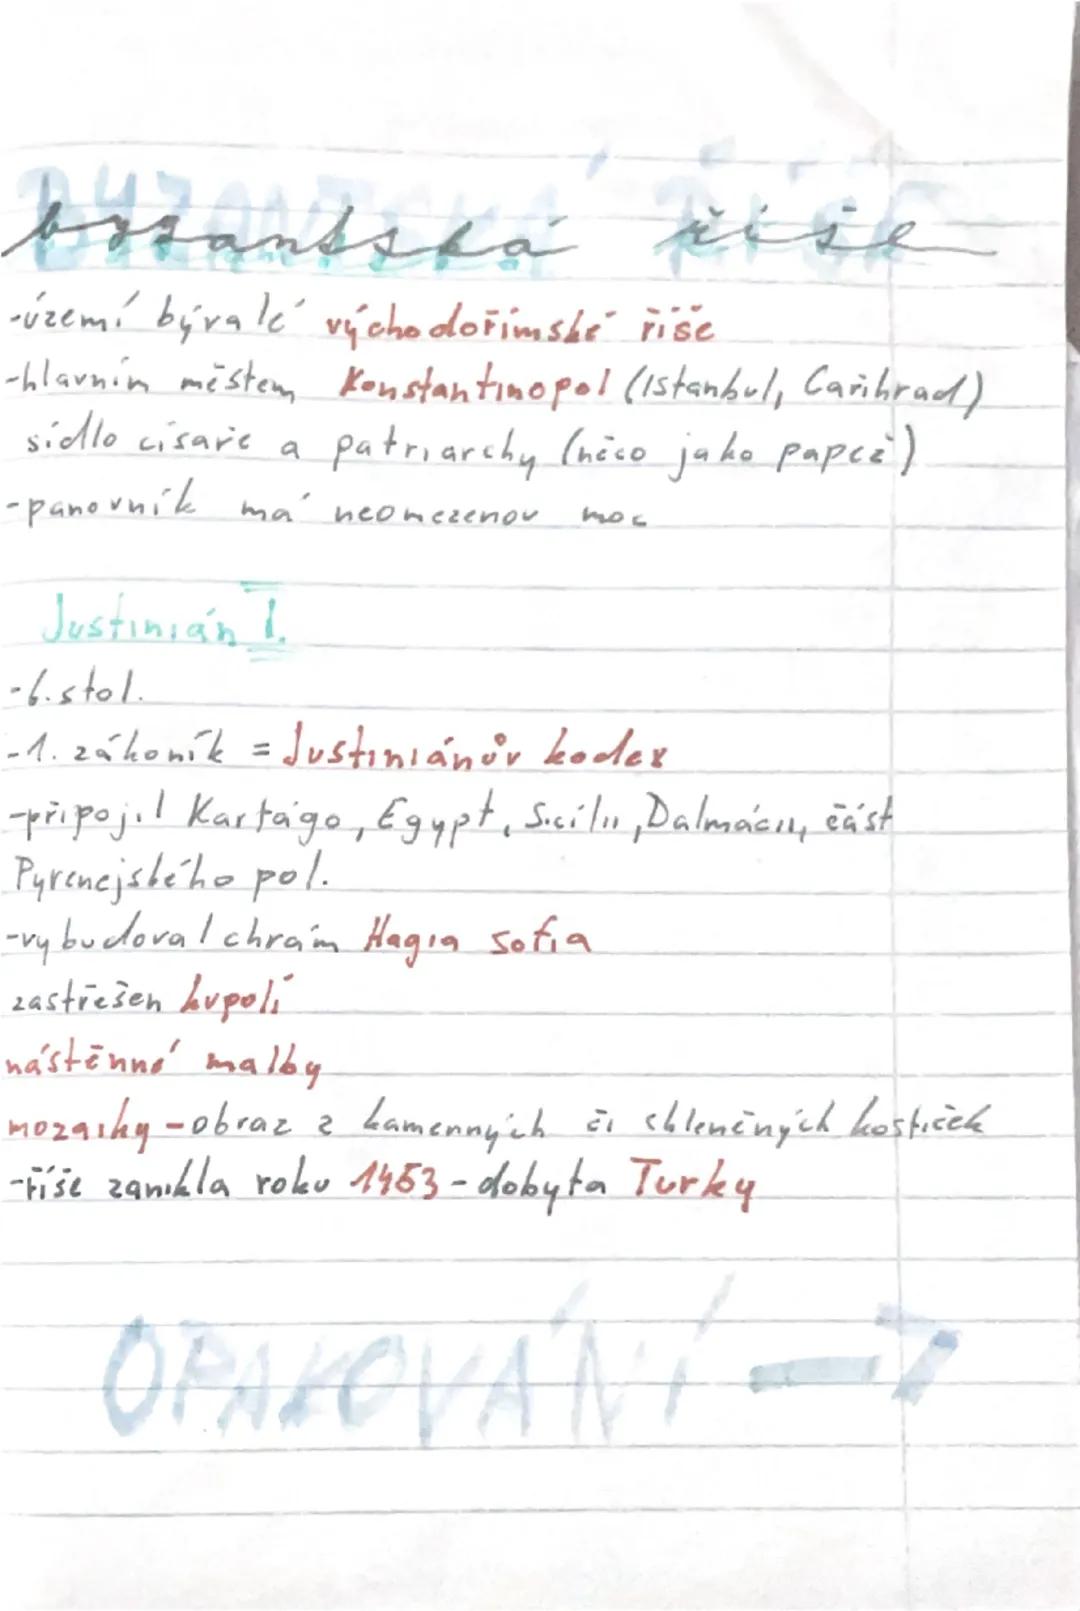 byzantská říše
-území bývalé východořímské říše
-hlavním městem Konstantinopol (Istanbul, Cařihrad)
sídlo císaře a patriarchy (něco jako papež)
-panovník má neomezenou moc
Justinián I.
-6. stol.
-1. zákoník = Justiniánův kodex
-připojil Kartágo, Egypt, Sicílii, Dalmácii, část
Pyrenejského pol.
-vybudoval chrám Hagia sofia
zastřešen kupolí
nástěnné malby
mozaiky - obraz z kamenných či skleněných kostiček
-říše zanikla roku 1453 - dobyta Turky
OPAKOVÁNÍ →